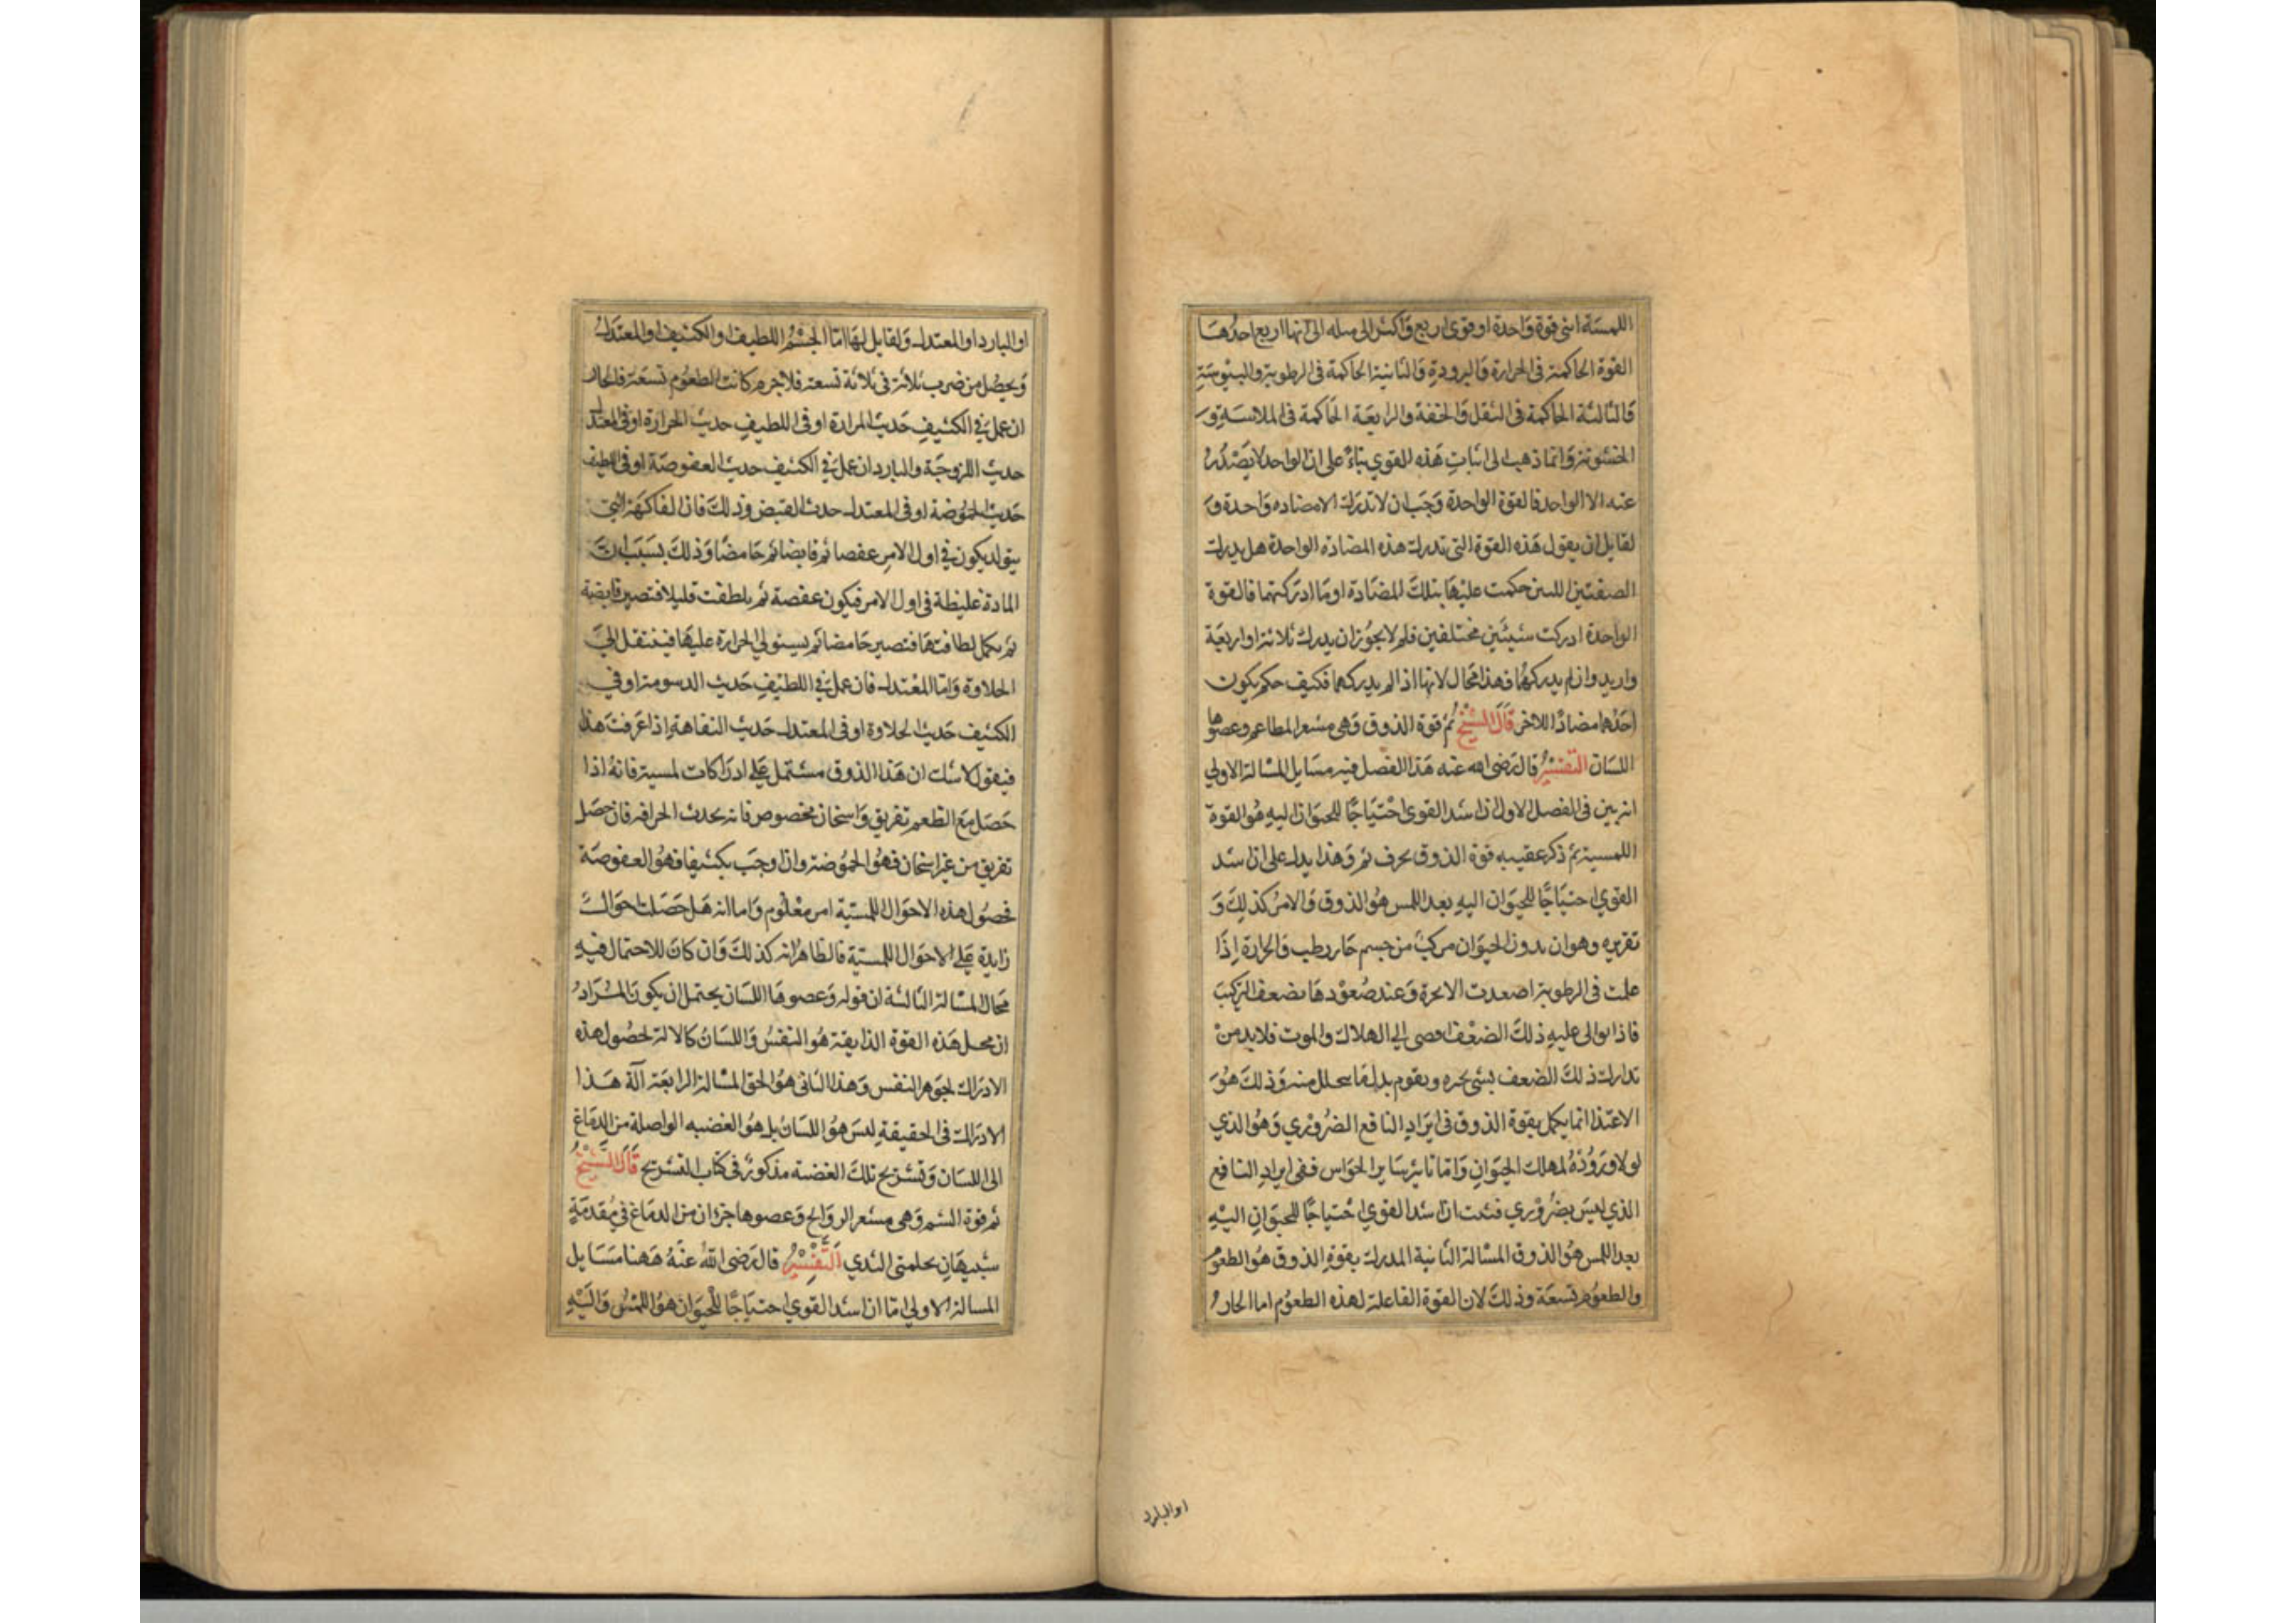 اللمسة اهى قوة واحدة او قوى اربع واكثر الى مىله الى انها اربع احدها
القوة الحاكمة فى الحرارة والبرودة والثانية الحاكمة فى الرطوبة واليبوسة
والثالثة الحاكمة فى الثقل والخفة والرابعة الحاكمة فى الملاسة و
الخشونة وانما ذهب الى اثبات هذه القوي بناء على ان الواحد لا يصدر
عنه الا الواحد فالقوة الواحدة وجب ان لا تدرك الا مضاده واحدة و
لقايل ان يقول هذه القوة التى تدرك هذه المضادة الواحدة هل يدرك
الصفتين اللتىن حكمت عليها بتلك المضادة او ما ادركتهما فالقوة
الواحدة ادركت شيئين مختلفين فلم لا يجوز ان يدرك ثلاثة او اربعة
وازيد وان لم يدركهما فهذا محال لانها اذا لم يدركهما فكيف حكم بكون
احدهما مضادا للاخر قال الشيخ ثم قوة الذوق وهى مشعر المطاعم وعضوها
اللسان التفسير قال رضى الله عنه هذا الفصل فيه مسايل المسالة الاولي
انه بين فى الفصل الاول ان اشد القوى احتياجا للحيوان اليه هو القوة
اللمسية ثم ذكر عقيبه قوة الذوق بحرف ثم وهذا يدل على ان اشد
القوي احتياجا للحيوان اليه بعد اللمس هو الذوق والامر كذلك و
تقريره وهو ان بدون الحيوان مركب من جسم حار رطب والحرارة اذا
عملت فى الرطوبة اصعدت الابخرة وعند صعودها يضعف التركيب
فاذا توالى عليه ذلك الضعف افضى الي الهلاك والموت فلا بد من
تدارك ذلك الضعف بشى يجبره ويقوم بدل ما يتحلل منه وذلك هو
الاغتذا انما يكمل بقوة الذوق فى ايراد النافع الضروري وهو الذي
لولا وروده لهلك الحيوان واما تاثير سائر الحواس ففى ايراد النافع
الذي ليس بضروري فثبت ان اشد القوي احتياجا للحيوان اليه
بعد اللمس هو الذوق المسالة الثانية المدرك بقوة الذوق هو الطعوم
والطعوم تسعة وذلك لان القوة الفاعلة لهذه الطعوم اما الحار
او البارد
او البارد او المعتدل والقابل لها اما الجسم اللطيف او الكثيف او المعتدل
ويحصل من ضرب ثلاثة فى ثلاثة تسعة فلا جرم كانت الطعوم تسعة فالحار
ان عمل في الكثيف حديث المرارة او فى اللطيف حديث الحرارة او فى المعتدل
حديث اللزوجة والبارد ان عمل في الكثيف حديث العفوصة او فى اللطيف
حديث الحموضة او فى المعتدل حدث القبض وذلك فان الفاكهة التى
يتولد يكون في اول الامر عفصا ثم قابضا ثم حامضا وذلك بسبب ان
المادة غليظة فى اول الامر فيكون عفصة ثم يلطفت قليلا فتصير قابضة
ثم يكمل لطافتها فتصير حامضا ثم يستولي الحرارة عليها فينتقل الي
الحلاوة واما المعتدل فان عمل في اللطيف حديث الدسومة او في
الكثيف حديث الحلاوة او فى المعتدل حديث التفاهة اذا عرفت هذا
فنقول لا شك ان هذا الذوق مشتمل علي ادراكات لمسية فانه اذا
حصل مع الطعم تفريق واسخان مخصوص فانه يحدث الحرافة فان حصل
تفريق من غير اسخان فهو الحموضة وان اوجب تكثيفا فهو العفوصة
فحصول هذه الاحوال اللمسية امر معلوم واما انه هل حصلت احوال
زايدة علي الاحوال اللمسية فالظاهر انه كذلك وان كان للاحتمال فيه
مجال المسالة الثالثة ان قوله وعضوها اللسان يحتمل ان يكون المراد
ان محل هذه القوة الذايقة هو النفس واللسان كالالة لحصول هذه
الادراك لجوهر النفس وهذا الثانى هو الحق المسالة الرابعة آلة هذا
الادراك فى الحقيقة ليس هو اللسان بل هو العضبه الواصلة من الدماغ
الى اللسان وتشريح تلك العضبة مذكور فى كتاب التشريح قال الشيخ
ثم قوة الشم وهى مشعر الروايح وعضوها جزان من الدماغ في مقدمة
شبيهان بحلمتى الثدي التفسير قال رضى الله عنه ههنا مسايل
المسالة الاولي اما ان اشد القوي احتياجا للحيوان هو اللمس واليه